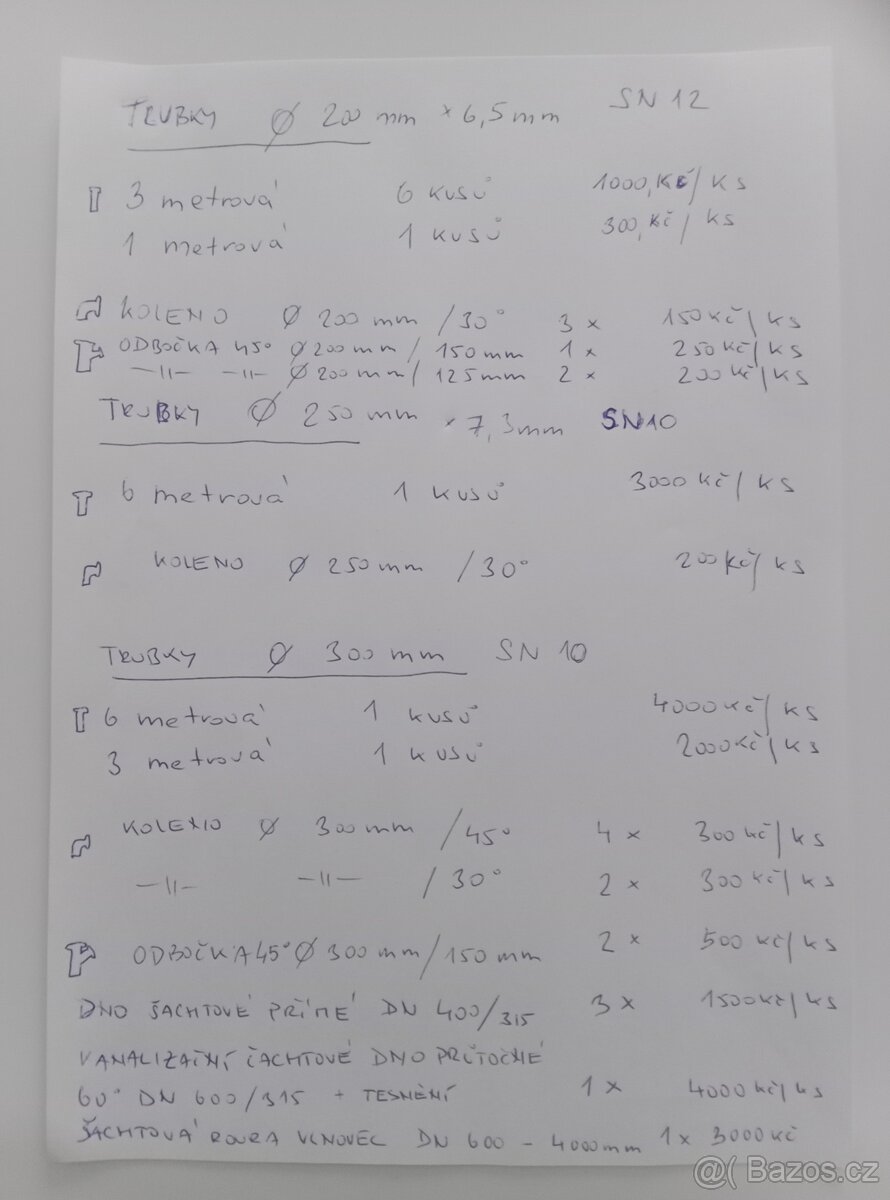 TRUBKY Ø 200 mm × 6,5 mm SN 12
3 metrová 6 kusů 1000,Kč/ks
1 metrová 1 kusů 300,Kč/ks
KOLENO Ø 200 mm /30° 3 x 150 Kč/ks
ODBOČKA 45° Ø 200 mm/150 mm 1 x 250 Kč/ks
—||— —||— Ø 200 mm/125 mm 2 x 200 Kč/ks
TRUBKY Ø 250 mm × 7,3 mm SN 10
6 metrová 1 kusů 3000 Kč/ks
KOLENO Ø 250 mm /30° 200 Kč/ks
TRUBKY Ø 300 mm SN 10
6 metrová 1 kusů 4000 Kč/ks
3 metrová 1 kusů 2000 Kč/ks
KOLENO Ø 300 mm /45° 4 x 300 Kč/ks
—||— —||— /30° 2 x 300 Kč/ks
ODBOČKA 45° Ø 300 mm/150 mm 2 x 500 Kč/ks
DNO ŠACHTOVÉ PŘÍMÉ DN 400/315 3 x 1500 Kč/ks
KANALIZAČNÍ ŠACHTOVÉ DNO PRŮTOČNÉ
60° DN 600/315 + TESNĚNÍ 1 x 4000 Kč/ks
ŠACHTOVÁ ROURA VLNOVEC DN 600 - 4000mm 1 x 3000 Kč
@( Bazos.cz